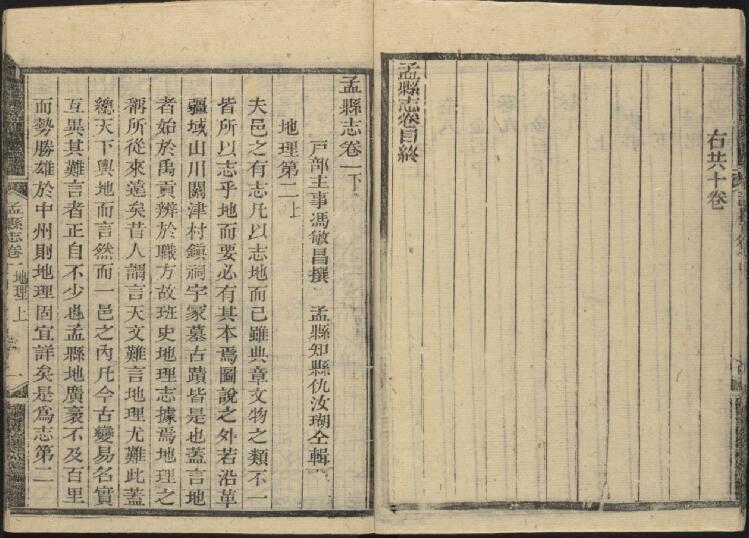 右共十卷
孟縣志卷目終
孟縣志卷一下
戸部主事馮敏昌撰 孟縣知縣仇汝瑚仝輯
地理第二上
夫邑之有志凡以志地而已雖典章文物之類不一
皆所以志乎地而要必有其本焉圖說之外若沿革
疆域山川關津村鎮祠宇冢墓古蹟皆是也蓋言地
者始於禹貢辨於職方故班史地理志據焉地理之
稱所從來遠矣昔人謂言天文難言地理尤難此蓋
緫天下輿地而言然而一邑之內凡今古變易名實
互異其難言者正自不少也孟縣地廣袤不及百里
而勢勝雄於中州則地理固宜詳矣是爲志第二
孟縣志卷一 地理上 一